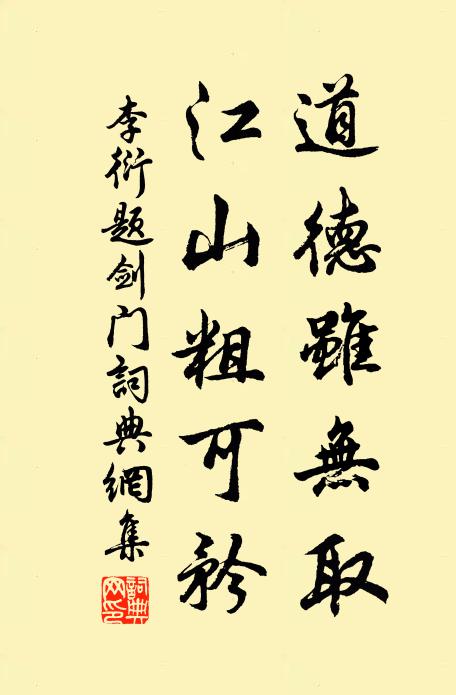 道德雖無取
江山粗可矜
李衍題劍门詞典網集
詞典